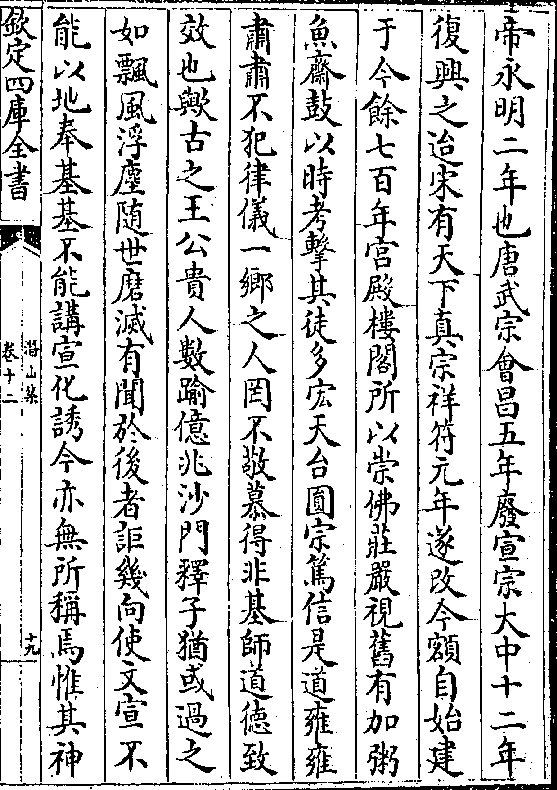 帝永明二年也唐武宗會昌五年廢宣宗大中十二年
復興之迨宋有天下真宗祥符元年遂改今額自始建
于今餘七百年宮殿樓閣所以崇佛莊嚴視舊有加粥
魚齋鼓以時考擊其徒多宏天台圓宗篤信是道雍雍
肅肅不犯律儀一鄉之人罔不敬慕得非基師道德致
效也歟古之王公貴人數踰億兆沙門釋子猶或過之
如飄風浮塵随世磨滅有聞於後者詎幾向使文宣不
能以地奉基基不能講宣化誘今亦無所稱焉惟其神
欽定四庫全書
潛山集
卷十二
十九